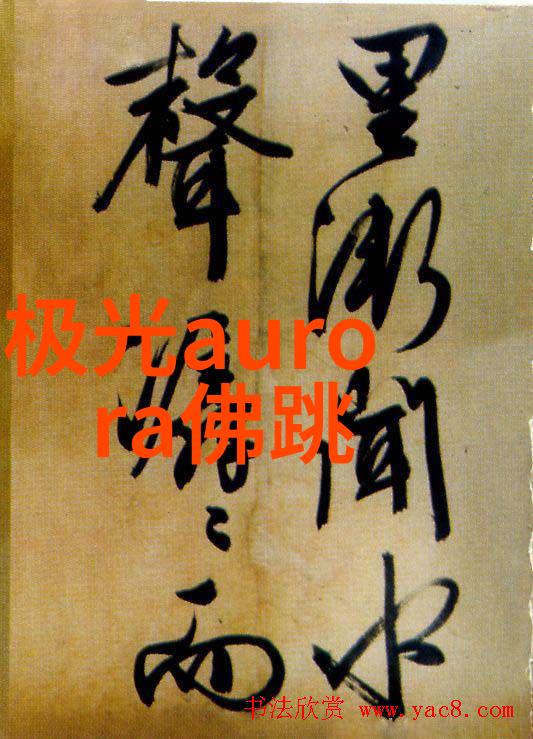 里漸聞水
聲潺〻而
极光auro
ra佛跳
书法欣赏 www.yac8.com